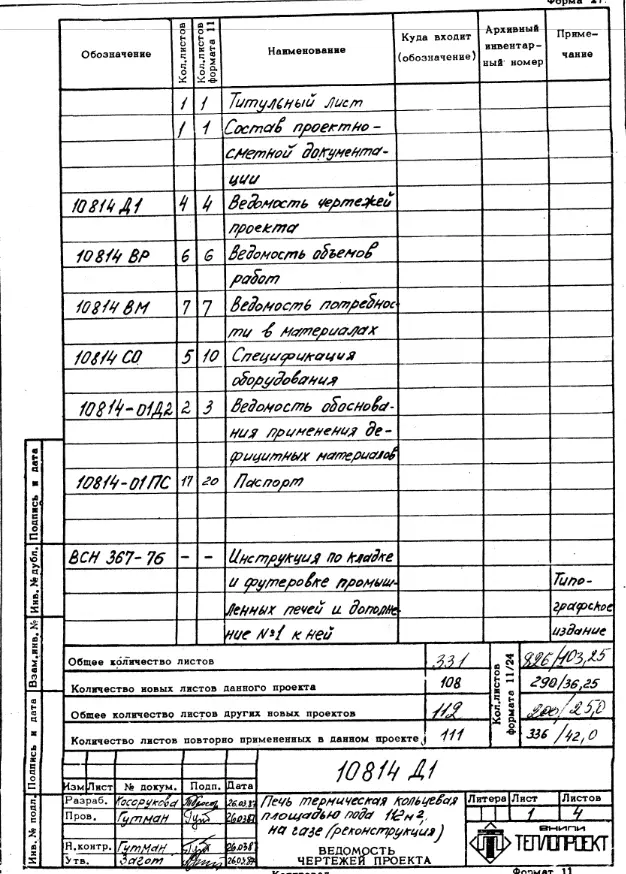 Форма 17.
Обозначение Кол.листов Кол.листов формата 11 Наименование Куда входит (обозначение) Архивный инвентарный номер Приме-чание
1 1 Титульный лист
1 1 Состав проектно-
сметной документа-
ции
10814 Д1 4 4 Ведомость чертежей
проекта
10814 ВР 6 6 Ведомость объемов
работ
10814 ВМ 7 7 Ведомость потребнос
ти в материалах
10814 СО 5 10 Спецификация
оборудования
10814-01Д2 2 3 Ведомость обоснова-
ния применения де-
фицитных материалов
10814-01 ПС 17 20 Паспорт
ВСН 367-76 – – Инструкция по кладке
и футеровке промыш- Типо-
ленных печей и дополне- графское
ние №1 к ней издание
Общее количество листов 331 826/103,25
Количество новых листов данного проекта 108 290/36,25
Общее количество листов других новых проектов 112 200/25,0
Количество листов повторно примененных в данном проекте 111 336/42,0
Кол.листов формата 11/24
10814 Д1
Изм Лист № докум. Подп. Дата
Разраб. Косорукова 26.03.87
Пров. Гутман 26.03.87
Н.контр. Гутман 26.03.87
Утв. Загот 26.03.87
Печь термическая кольцевая
площадью пода 112 м2,
на газе (реконструкция)
ВЕДОМОСТЬ
ЧЕРТЕЖЕЙ ПРОЕКТА
Литера Лист Листов
1 4
ВНИПИ
ТЕПЛОПРОЕКТ
Инв. № подл. Подпись и дата Взам.инв. № Инв. № дубл. Подпись и дата
Копировал Формат 11